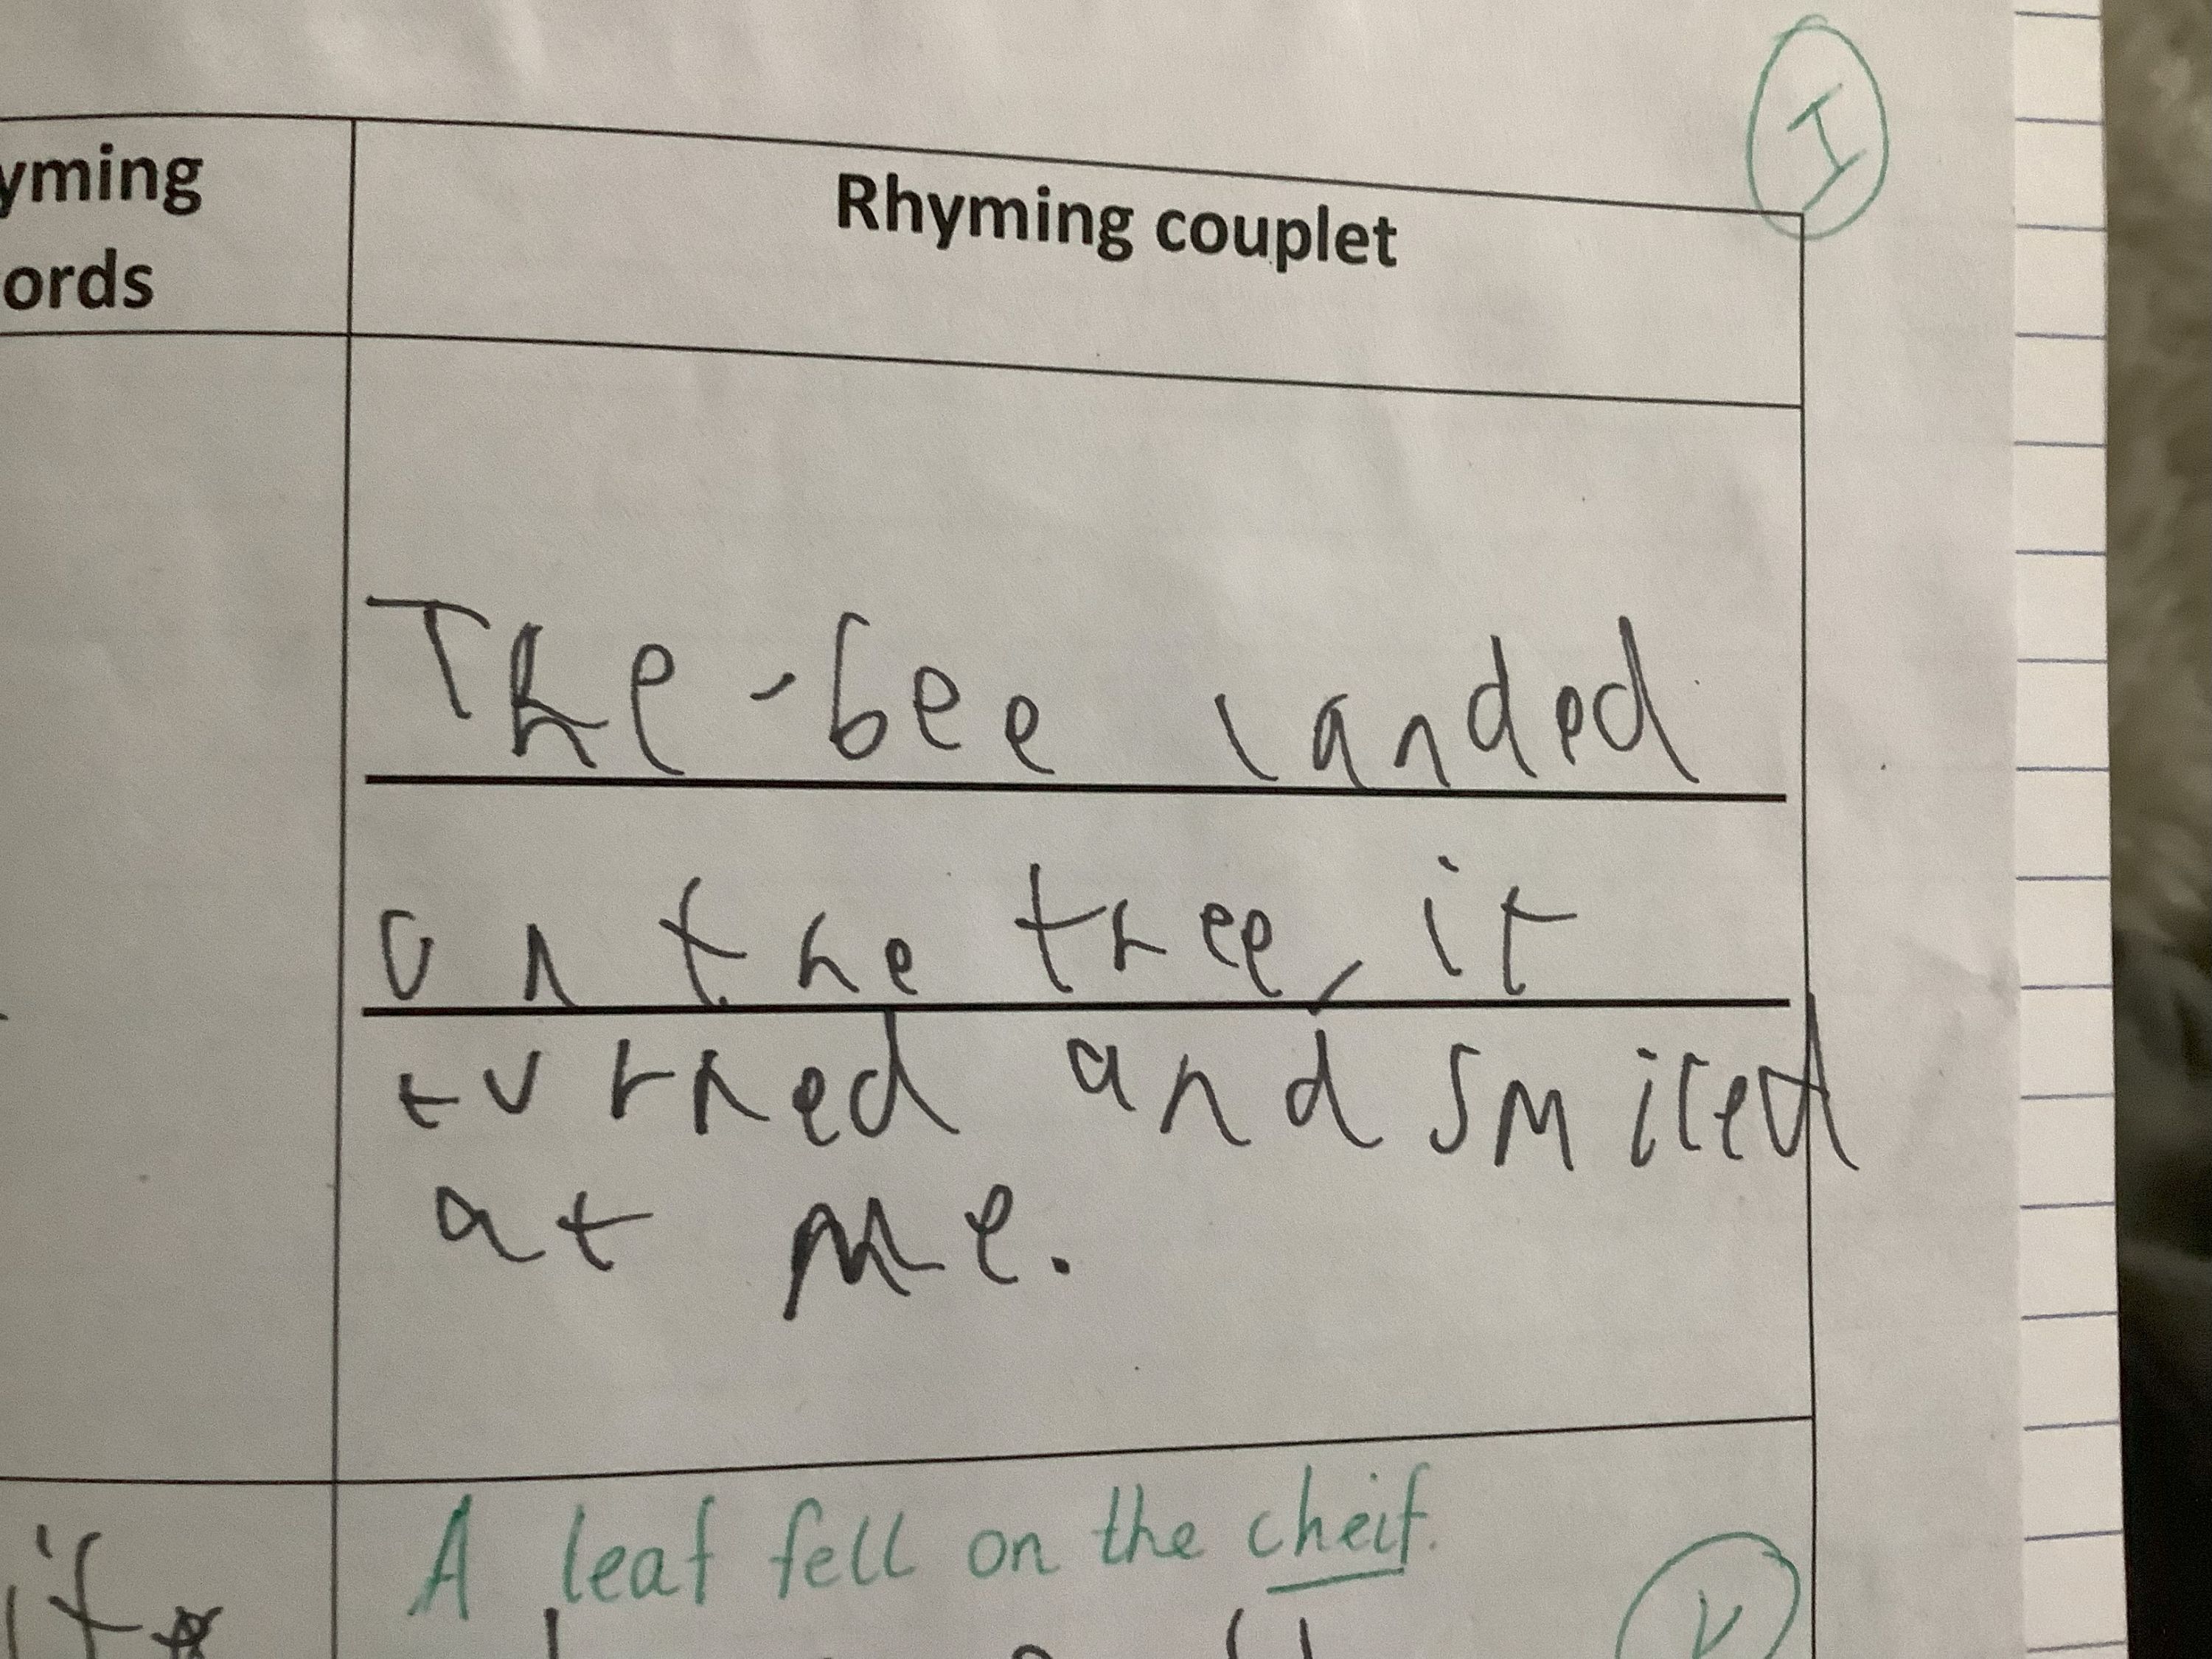 I
yming
ords
Rhyming couplet
The bee landed
on the tree, it
turned and smiled
at me.
A leaf fell on the cheif.
V